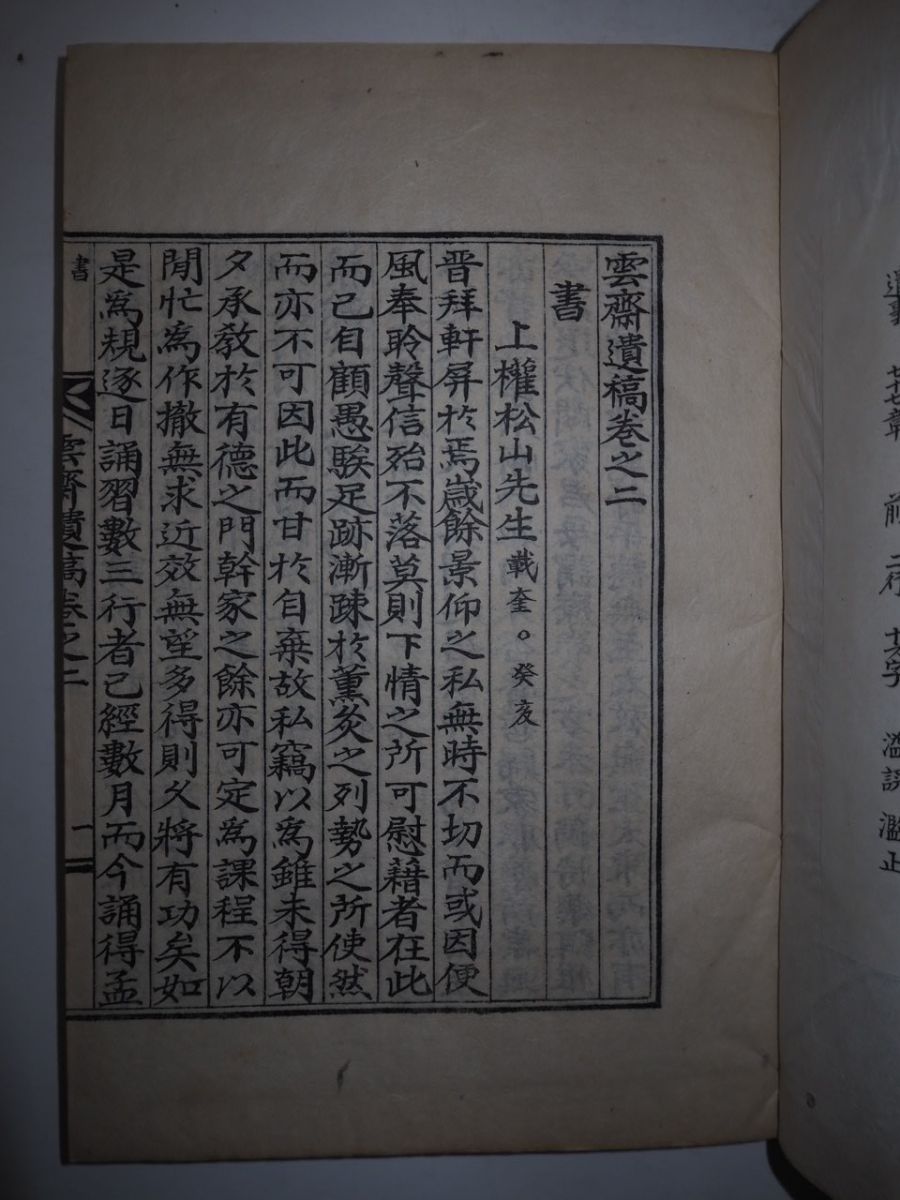 遺
七七章 前 二行 十六字 濫誤 濫正
雲齋遺稿卷之二
書
上權松山先生載奎。癸亥
晋拜軒屛於焉歲餘景仰之私無時不切而或因便
風奉聆聲信殆不落莫則下情之所可慰藉者在此
而已自顧愚騃足跡漸踈於薰炙之列勢之所使然
而亦不可因此而甘於自棄故私竊以爲雖未得朝
夕承敎於有德之門幹家之餘亦可定爲課程不以
閒忙爲作撤無求近效無望多得則久將有功矣如
是爲規逐日誦習數三行者已經數月而今誦得孟
書
雲齋遺稿卷之二
一